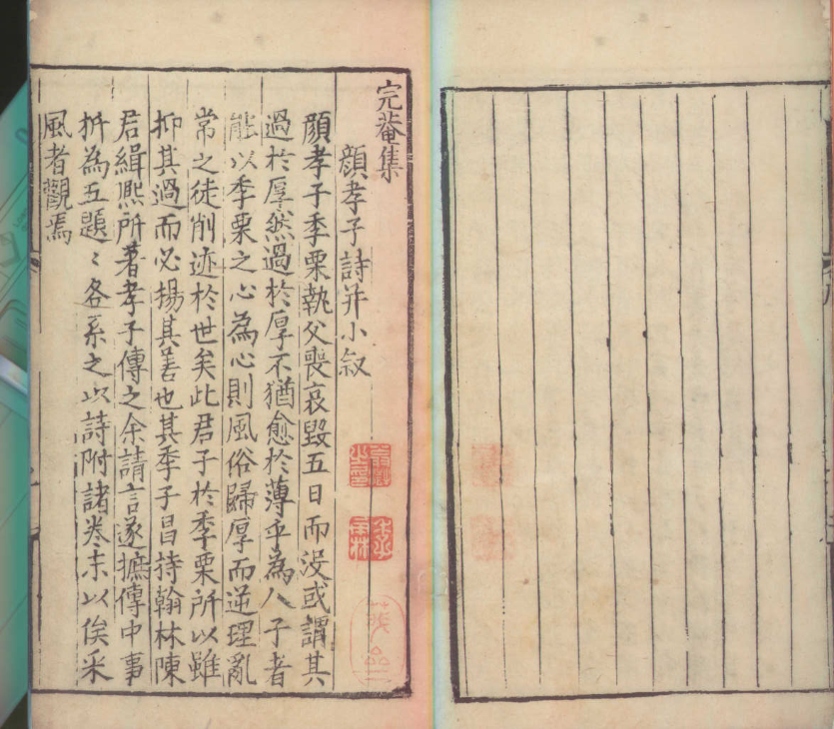 完菴集
顔孝子詩并小叙
顔孝子季栗執父喪哀毀五日而没或謂其
過於厚然過於厚不猶愈於薄乎為人子者
能以季栗之心為心則風俗歸厚而逆理亂
常之徒削迹於世矣此君子於季栗所以雖
抑其過而必揚其善也其季子昌持翰林陳
君緝熈所著孝子傳之余請言遂摭傳中事
析為五題〻各系之以詩附諸卷末以俟采
風者觀焉